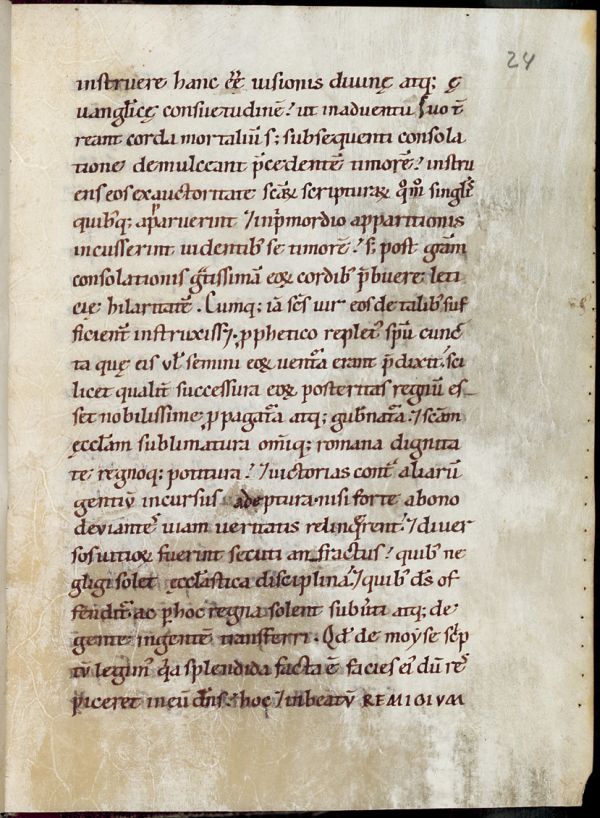 24
instruere hanc eē uisionis diuinę atq; ę
uangl̄icę consuetudinē? ut in aduentu suo t̄
reant corda mortaliū s; subsequenti consola
tione demulceant p̄cedentē timorē? instru
ens eos ex auctoritate scāꝝ scripturaꝝ qm̄ singl̄
quibꝰq; apparuerint ⁊ in p̄mordio apparitionis
incusserint uidentibꝰ se timorē? s; post grām
consolationis grātissimā eoꝝ cordibꝰ p̄buere leti
cię hilaritatē. Cumq; iā scs̄ uir eos de talibꝰ suf
ficient̄ instruxiss&, ꝓphetico repletꝰ spū cunc
ta quę eis ul̄ semini eoꝝ uentura erant p̄dixit. sci
licet qualit̄ successura eoꝝ posteritas regnū es-
set nobilissime ꝓpagatura atq; gub̄natura. ⁊ scām
ęccl̄am sublimatura omīq; romana dignita
te regnoq; potitura? ⁊ uictorias cont̄ aliarū
gentiū incursus adeptura. nisi forte a bono
deuiantes uiam ueritatis relinquerent. ⁊ diuer
sos uitioꝝ fuerint secuti anfractus? quibꝰ ne
gligi solet ęccl̄astica disciplina. ⁊ quibꝰ ds̄ of
fendit̄ ac p̱ hoc regna solent subūti atq; de
gente in gentē transferri. Qd̄ de moyse sc̄p
tū legimꝰ q̄a splendida facta ē facies eiꝰ dū res
piceret in eū dn̄s. hoc ⁊ in beatū REMIGIVM